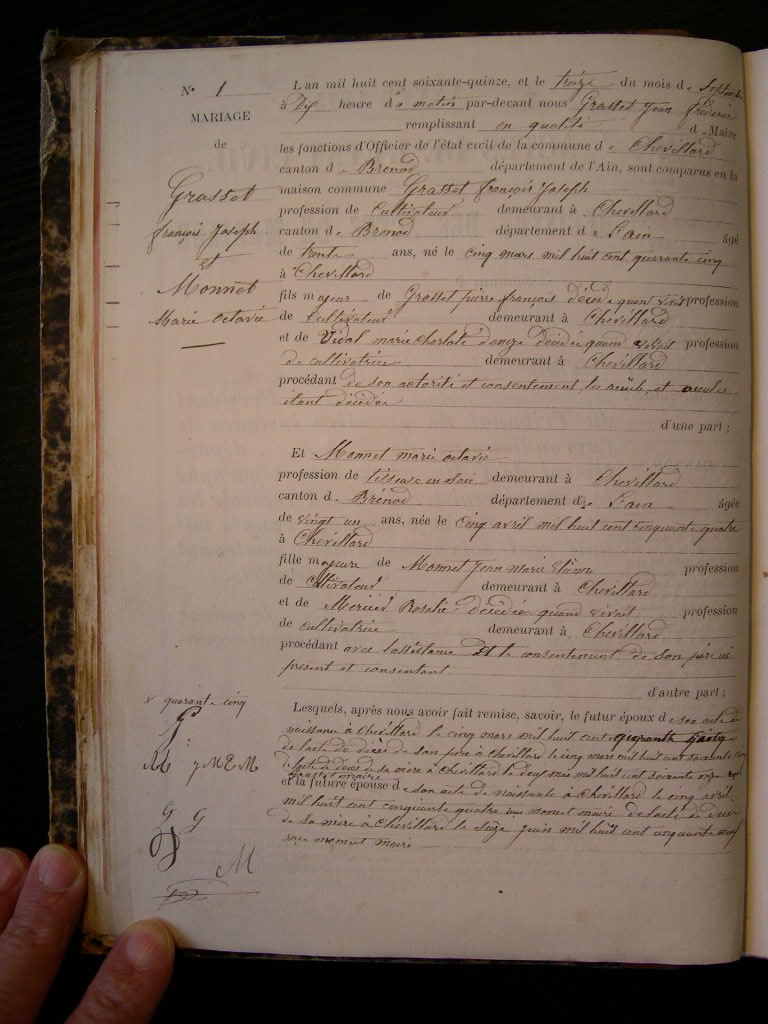 N° 1
MARIAGE
de
Grasset
françois Joseph
et
Monnet
Marie octavie
L'an mil huit cent soixante-quinze, et le treize du mois de Septembre
à Dix heure du matin par-devant nous Grasset Jean
remplissant en qualité de Maire
les fonctions d'Officier de l'état civil de la commune de Chevillard
canton de Brenod département de l'Ain, sont comparus en la
maison commune Grasset françois Joseph
profession de Cultivateur demeurant à Chevillard
canton de Brenod département de L'ain âgé
de trente ans, né le cinq mars mil huit cent quarante cinq
à Chevillard
fils majeur de Grasset pierre françois décédé quand vivait profession
de Cultivateur demeurant à Chevillard
et de Vidal marie charlote décédée quand vivait profession
de cultivatrice demeurant à Chevillard
procédant de son autorité et consentement, les et
étant décédés
d'une part ;
Et Monnet marie octavie
profession de tisseuse en soie demeurant à Chevillard
canton de Brénod département de L'ain âgée
de vingt un ans, née le Cinq avril mil huit cent cinquante quatre
à Chevillard
fille majeure de Monnet Jean marie profession
de Cultivateur demeurant à Chevillard
et de Mercier Rosalie décédée quand vivait profession
de cultivatrice demeurant à Chevillard
procédant avec l'assistance et le consentement de son père ici
present et consentant
d'autre part ;
Lesquels, après nous avoir fait remise, savoir, le futur époux de son acte de
naissance à Chevillard le cinq mars mil huit cent quarante
de lacte de décès de son père à Chevillard le cinq mars mil huit cent soixante cinq
de lacte de décès de sa mère à Chevillard le deux mai mil huit cent soixante onze
Grasset maire
et la future épouse de son acte de naissante à Chevillard le cinq avril
mil huit cent cinquante quatre Monnet maire de lacte de décès
de sa mère à Chevillard le seize Juin mil huit cent cinquante
Monnet maire
x quarante cinq
G
M J M E M
G G
M